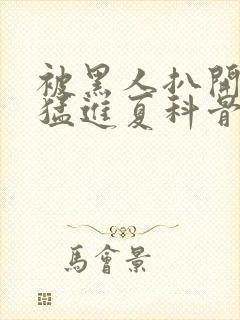 被黑人扒開
猛進夏科骨
馬會景